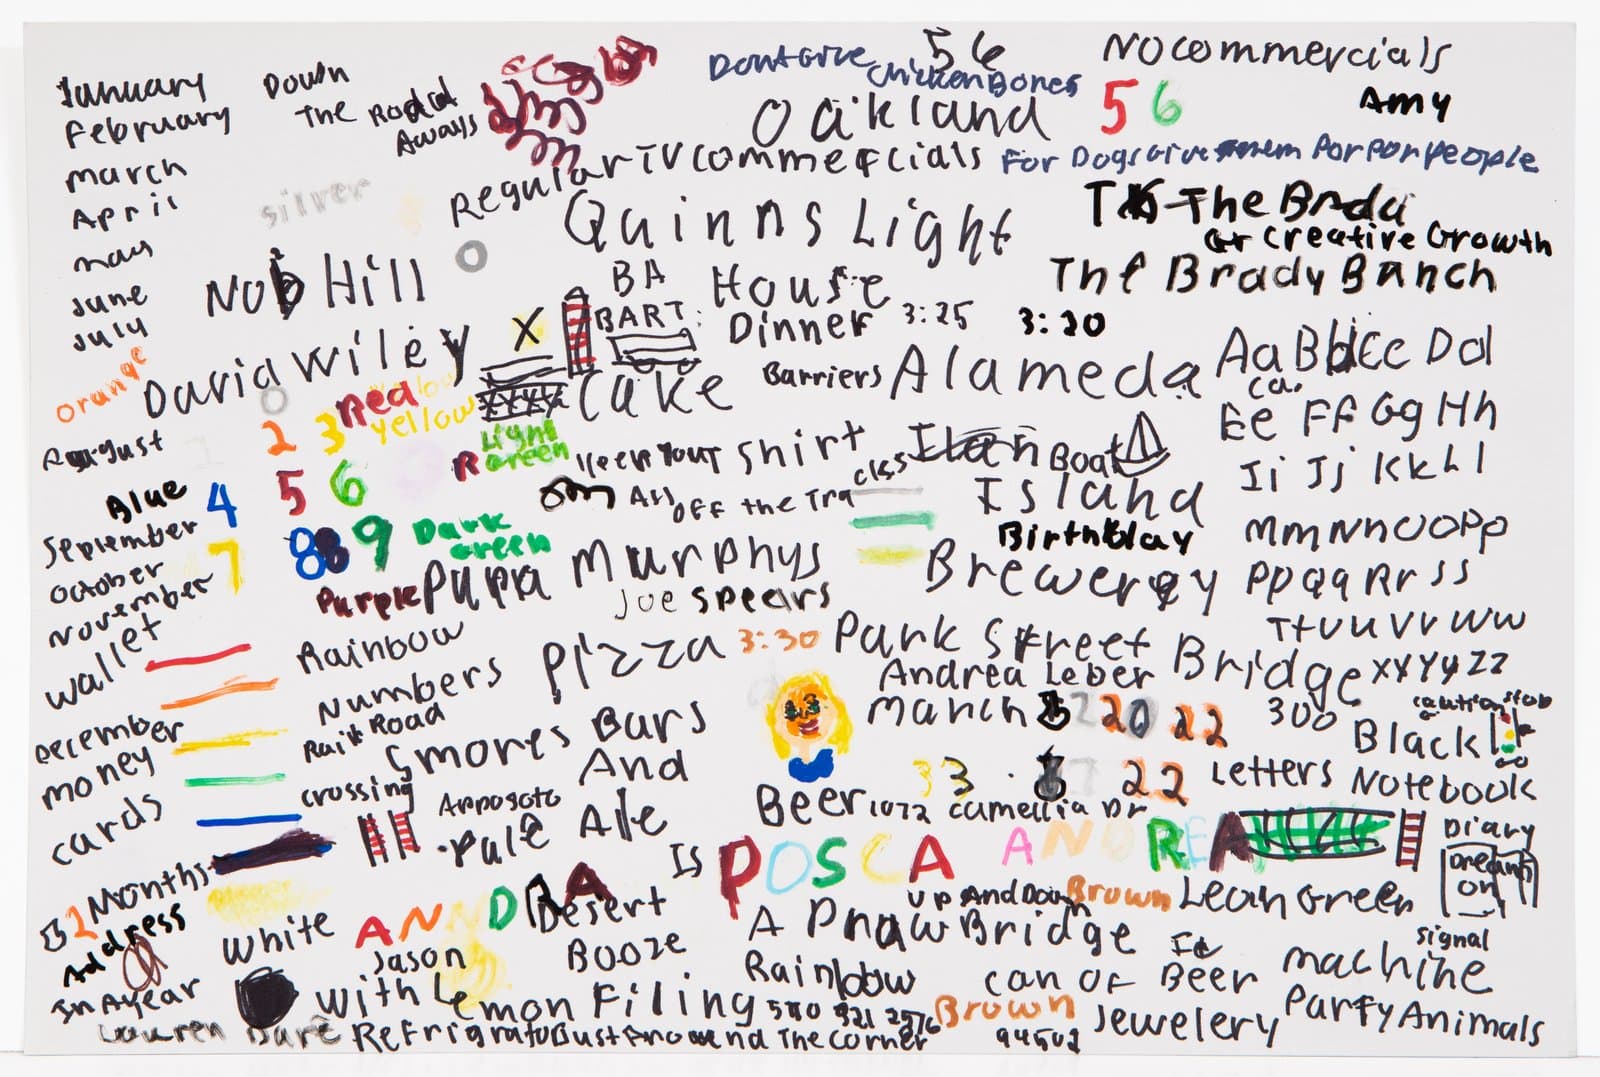 January
February
March
April
may
June
July
orange
August
Blue
September
October
November
wallet
December
money
cards
12 Months
Address
In A year
Down
The Road
Aways
silver
Nob Hill
David Wiley
0
2 3
Red
yellow
4 5 6
7 8 8 9
Light
Green
Dark
Green
Purple
Rainbow
Numbers
Rail Road
crossing
White
Jason
Lauren Dare
Dont Give
Chicken Bones
56
Oakland
Regular TV commercials
For Dogs Give them For Por People
No commercials
5 6
Amy
Quinns Light
House
Dinner 3:25 3:20
The Brada
at Creative Growth
The Brady Banch
0
BA
BART
X
Cake
Barriers Alameda
ca.
Aa Bb Cc Dd
Ee Ff Gg Hh
Ii Jj Kk Ll
Mm Nn Oo Pp
Pp Qq Rr Ss
Tt Uu Vv Ww
Xx Yy Zz
Keep Your Shirt
Ass off the Tracks
Boat
Island
Birthday
Brewery
Papa Murphys
Joe Spears
Pizza 3:30
Park Street Bridge
Andrea Leber
March 20 22
33 22
300
caution stop
Black
Letters Notebook
Smores Bars
And
Pale Ale
Beer 1072 camellia Dr
Is POSCA ANDREA
Diary
on
ANNDRA
Desert
Booze
up And Down Brown Lean Green
A Draw Bridge
signal
machine
Rainbow
can Of Beer
with Lemon Filing 510 921 2576
Brown
94502
Jewelery Party Animals